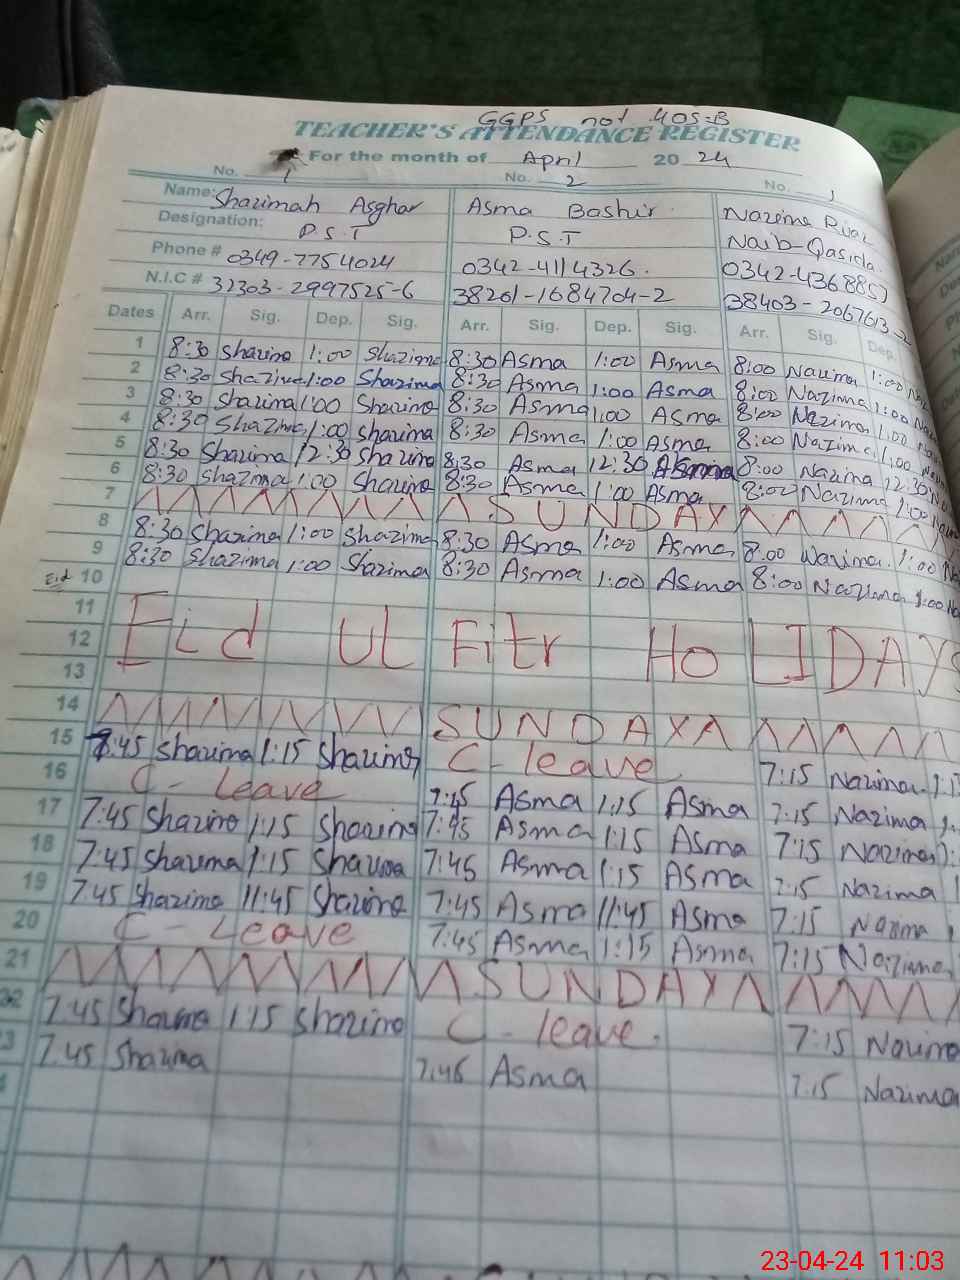 GGPS not 405-B
TEACHER'S ATTENDANCE REGISTER
For the month of April 2024
No. 1 No. 2 No. 1
Name: Shazimah Asghar Asma Bashir Nazima Riaz
Designation: P.S.T P.S.T Naib-Qasida
Phone # 0349-7754024 0342-4114326. 0342-436885
N.I.C # 32303-2997525-6 38201-1684704-2 38403-2067613-2
Dates Arr. Sig. Dep. Sig. Arr. Sig. Dep. Sig. Arr. Sig. Dep.
1 8:30 Shazima 1:00 Shazima 8:30 Asma 1:00 Asma 8:00 Nazima 1:00
2 8:30 Shazima 1:00 Shazima 8:30 Asma 1:00 Asma 8:00 Nazima 1:00
3 8:30 Shazima 1:00 Shazima 8:30 Asma 1:00 Asma 8:00 Nazima 1:00
4 8:30 Shazima 1:00 Shazima 8:30 Asma 1:00 Asma 8:00 Nazima 1:00
5 8:30 Shazima 12:30 Shazima 8:30 Asma 12:30 Asma 8:00 Nazima 12:30
6 8:30 Shazima 1:00 Shazima 8:30 Asma 1:00 Asma 8:00 Nazima 1:00
7 SUNDAY
8 8:30 Shazima 1:00 Shazima 8:30 Asma 1:00 Asma 8:00 Nazima 1:00
9 8:30 Shazima 1:00 Shazima 8:30 Asma 1:00 Asma 8:00 Nazima 1:00
Eid 10
11
12 Eid Ul Fitr HoLIDAYS
13
14 SUNDAY
15 7:45 Shazima 1:15 Shazima C-leave 7:15 Nazima
16 C-Leave 7:45 Asma 1:15 Asma 7:15 Nazima
17 7:45 Shazima 1:15 Shazima 7:45 Asma 1:15 Asma 7:15 Nazima
18 7:45 Shazima 1:15 Shazima 7:45 Asma 1:15 Asma 7:15 Nazima
19 7:45 Shazima 11:45 Shazima 7:45 Asma 11:45 Asma 7:15 Nazima
20 C-Leave 7:45 Asma 1:15 Asma 7:15 Nazima
21 SUNDAY
22 7:45 Shazima 1:15 Shazima C-leave. 7:15 Nazima
3 7:45 Shazima 7:45 Asma 7:15 Nazima
23-04-24 11:03